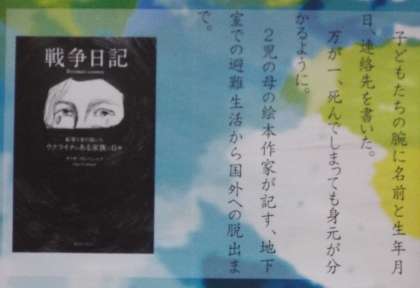 子どもたちの腕に名前と生年月
日、連絡先を書いた。
万が一、死んでしまっても身元が分
かるように。
２児の母の絵本作家が記す、地下
室での避難生活から国外への脱出ま
で。
戦争日記
ウクライナのある家族の日々